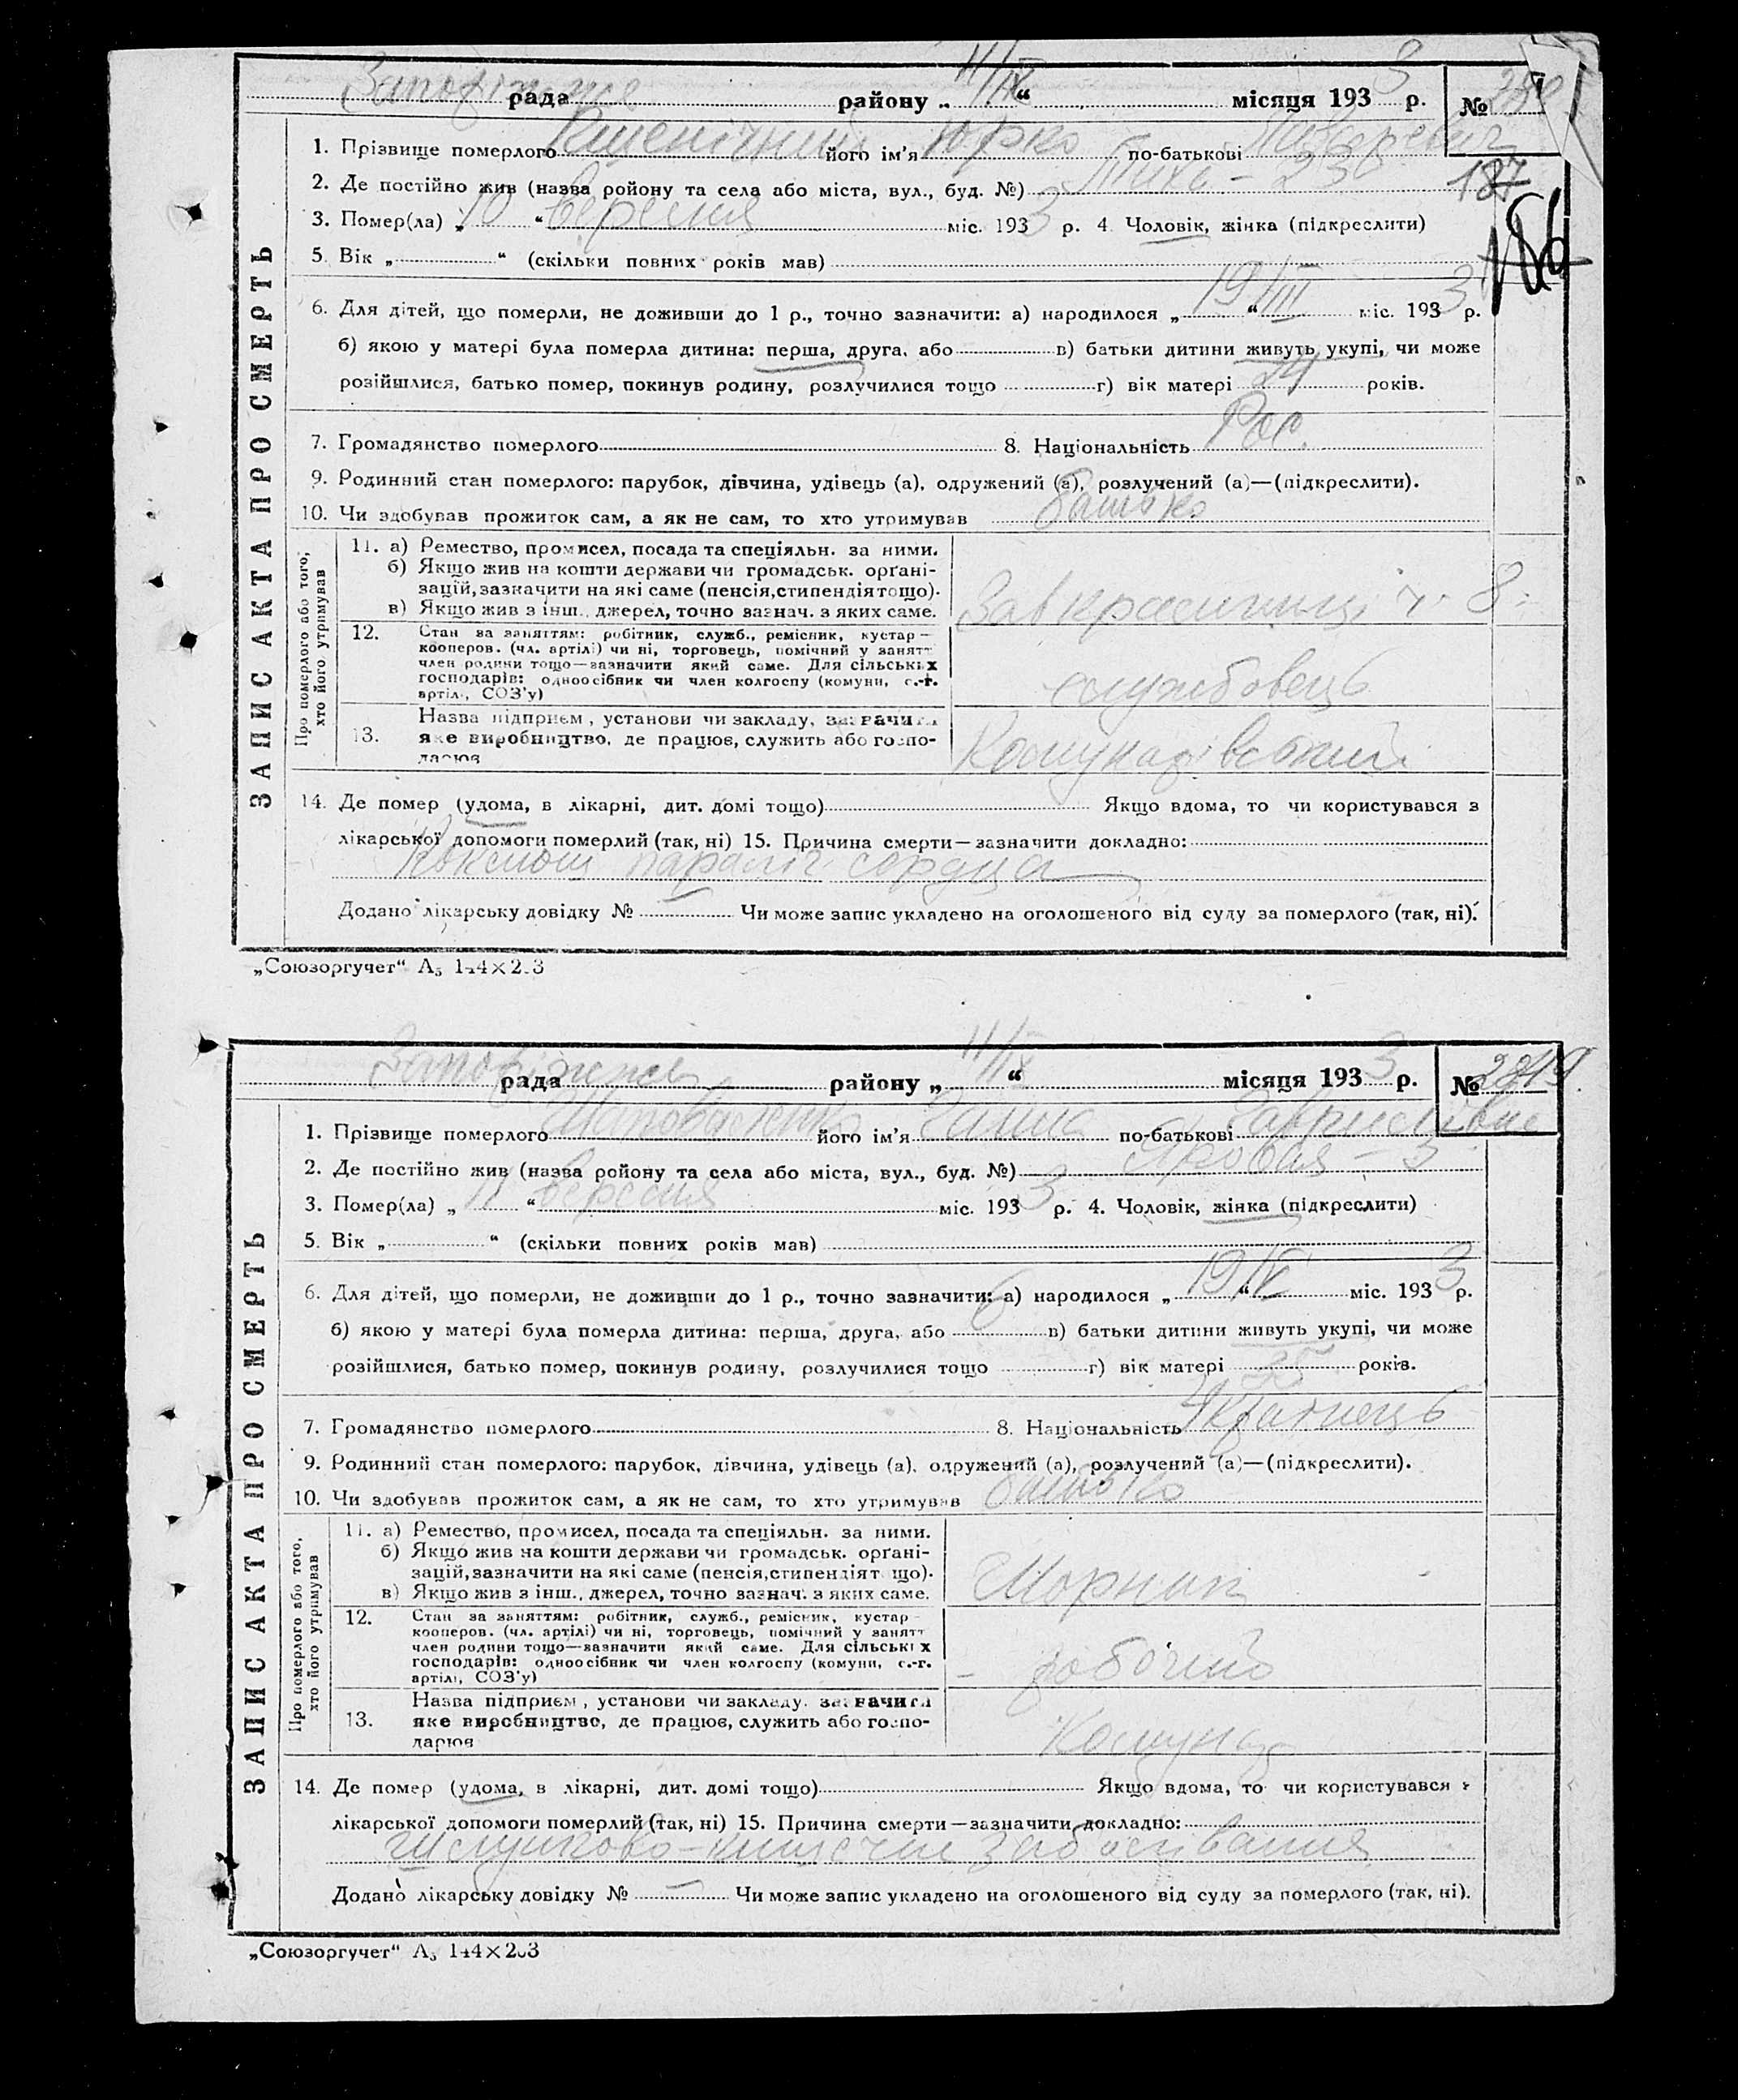 рада району „ 11/IX “ місяця 1933 р. №
1. Прізвище померлого Пшенічний його ім'я Юрко по-батькові
2. Де постійно жив (назва ройону та села або міста, вул., буд. №) Тиха - 23
187
3. Помер(ла) „ 10 “ вересня міс. 1933 р. 4. Чоловік, жінка (підкреслити)
186
5. Вік „ “ (скільки повних років мав)
6. Для дітей, що померли, не доживши до 1 р., точно зазначити: а) народилося „ 19 “ III міс. 1933 р.
б) якою у матері була померла дитина: перша, друга, або в) батьки дитини живуть укупі, чи може
розійшлися, батько помер, покинув родину, розлучилися тощо г) вік матері 24 років.
7. Громадянство померлого 8. Національність Рос.
9. Родинний стан померлого: парубок, дівчина, удівець (а), одружений (а), розлучений (а)—(підкреслити).
10. Чи здобував прожиток сам, а як не сам, то хто утримував батько
ЗАПИС АКТА ПРО СМЕРТЬ
Про померлого або того, хто його утримував
11. а) Ремество, промисел, посада та спеціяльн. за ними.
б) Якщо жив на кошти держави чи громадськ. орґані-
зацій, зазначити на які саме (пенсія, стипендія тощо).
в) Якщо жив з інш. джерел, точно зазнач. з яких саме.
Зав крамниці ч. 8
12. Стан за заняттям: робітник, служб., ремісник, кустар—
кооперов. (чл. артілі) чи ні, торговець, помічний у занятт
член родини тощо—зазначити який саме. Для сільських
господарів: одноосібник чи член колгоспу (комуни, с.-г.
артілі, СОЗ'у)
службовець
13. Назва підприєм, установи чи закладу, зазначити
яке виробництво, де працює, служить або госпо-
дарює
Комунарівський
14. Де помер (удома, в лікарні, дит. домі тощо) Якщо вдома, то чи користувався з
лікарської допомоги померлий (так, ні) 15. Причина смерти—зазначити докладно:
Коклюш параліч сердца
Додано лікарську довідку № — Чи може запис укладено на оголошеного від суду за померлого (так, ні).
„Союзоргучет“ А₅ 144×203
рада району „ 11/IX “ місяця 1933 р. №
1. Прізвище померлого Шаповаленко його ім'я Галина по-батькові Гаврилівна
2. Де постійно жив (назва ройону та села або міста, вул., буд. №) Яровая - 3
3. Помер(ла) „ 11 “ вересня міс. 1933 р. 4. Чоловік, жінка (підкреслити)
5. Вік „ “ (скільки повних років мав)
6. Для дітей, що померли, не доживши до 1 р., точно зазначити: а) народилося „ 19 “ IV міс. 1933 р.
б) якою у матері була померла дитина: перша, друга, або 6 в) батьки дитини живуть укупі, чи може
розійшлися, батько помер, покинув родину, розлучилися тощо г) вік матері років.
7. Громадянство померлого 8. Національність Українець
9. Родинний стан померлого: парубок, дівчина, удівець (а), одружений (а), розлучений (а)—(підкреслити).
10. Чи здобував прожиток сам, а як не сам, то хто утримував батько
ЗАПИС АКТА ПРО СМЕРТЬ
Про померлого або того, хто його утримував
11. а) Ремество, промисел, посада та спеціяльн. за ними.
б) Якщо жив на кошти держави чи громадськ. орґані-
зацій, зазначити на які саме (пенсія, стипендія тощо).
в) Якщо жив з інш. джерел, точно зазнач. з яких саме.
Шорник
12. Стан за заняттям: робітник, служб., ремісник, кустар—
кооперов. (чл. артілі) чи ні, торговець, помічний у занятт
член родини тощо—зазначити який саме. Для сільських
господарів: одноосібник чи член колгоспу (комуни, с.-г.
артілі, СОЗ'у)
- робочий
13. Назва підприєм, установи чи закладу, зазначити
яке виробництво, де працює, служить або госпо-
дарює
Комунар
14. Де помер (удома, в лікарні, дит. домі тощо) Якщо вдома, то чи користувався з
лікарської допомоги померлий (так, ні) 15. Причина смерти—зазначити докладно:
шлунково-кишечне заболівання
Додано лікарську довідку № — Чи може запис укладено на оголошеного від суду за померлого (так, ні).
„Союзоргучет“ А₅ 144×203